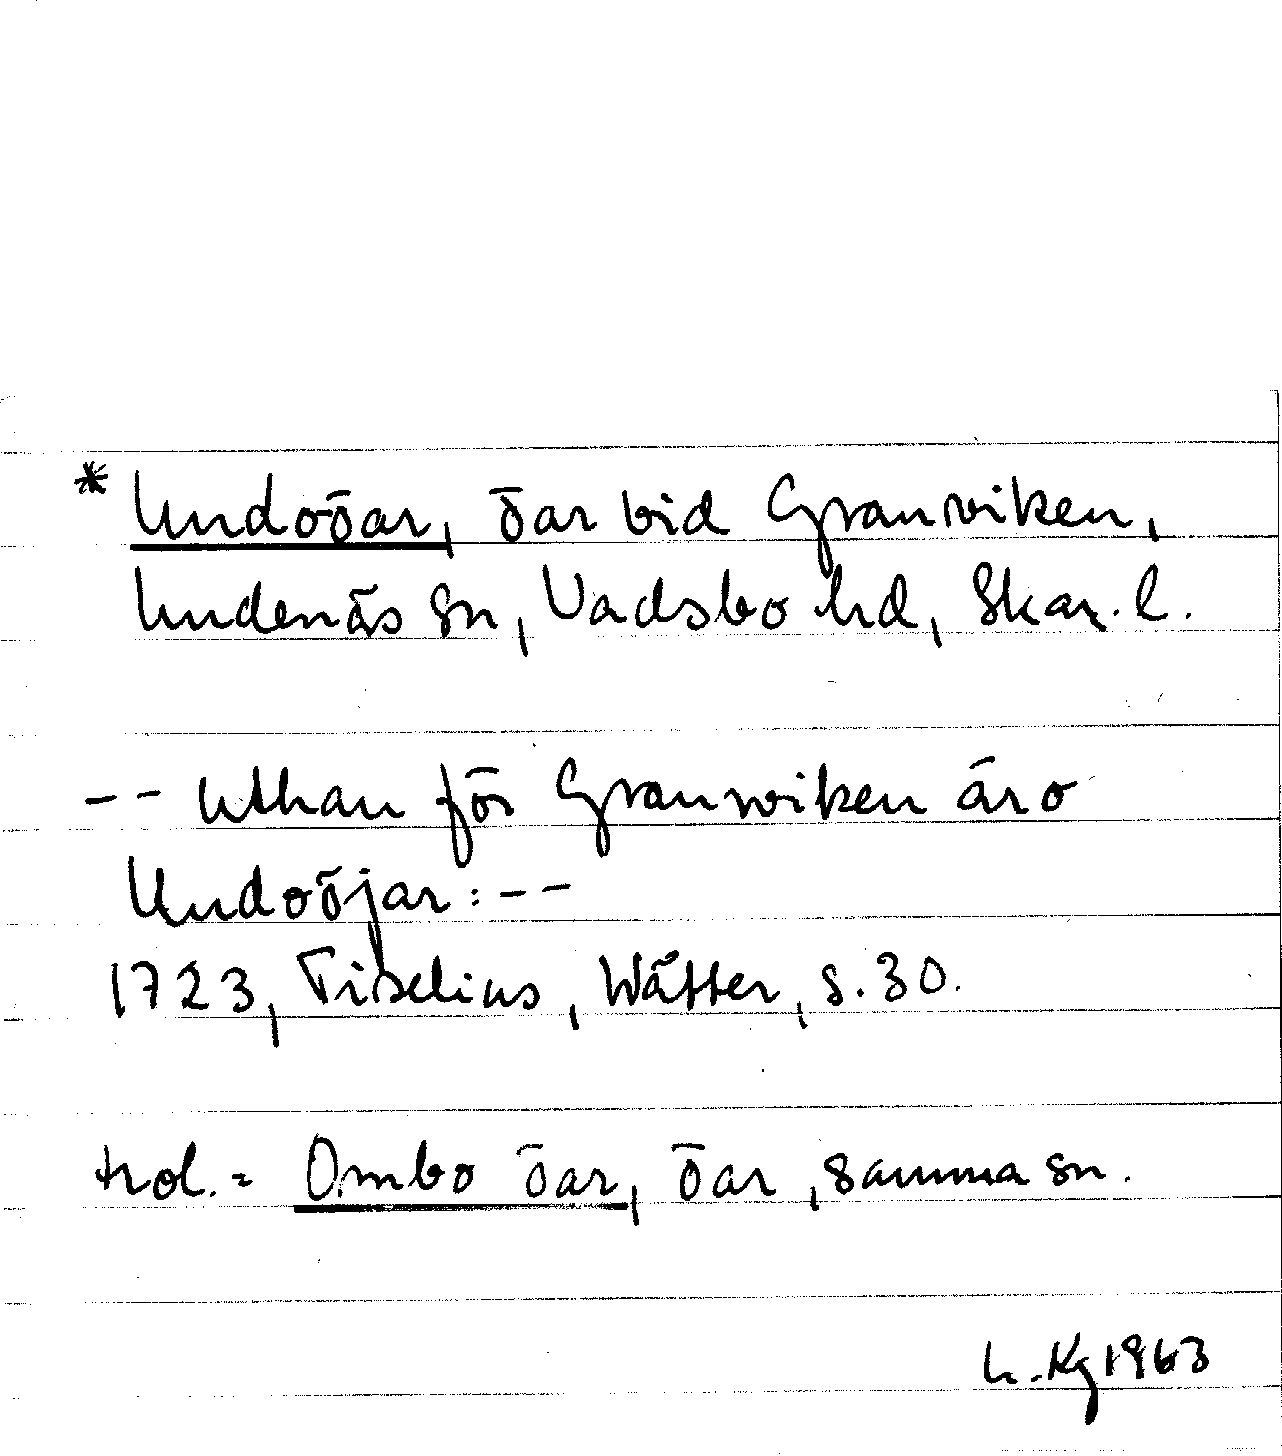 * Undoöar, öar vid Granviken,
Undenäs sn, Vadsbo hd, Skar. l.
-- Uthan för Granwiken äro
Undoöjar: --
1723, Tiselius, Wätter, s. 30.
trol. = Ombo öar, öar, samma sn.
h. Kg 1963